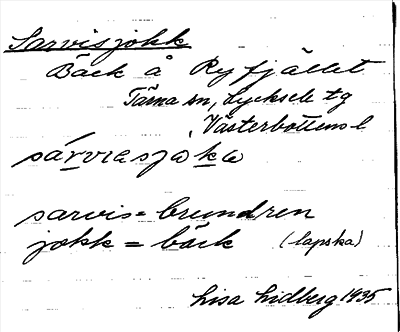 Sarvisjokk
Bäck å Ryfjället
Tärna sn, Lycksele tg
Västerbottens l
sárvrasjoka
sarvis = brundren
jokk = bäck (lapska)
Lisa Lidberg 1935